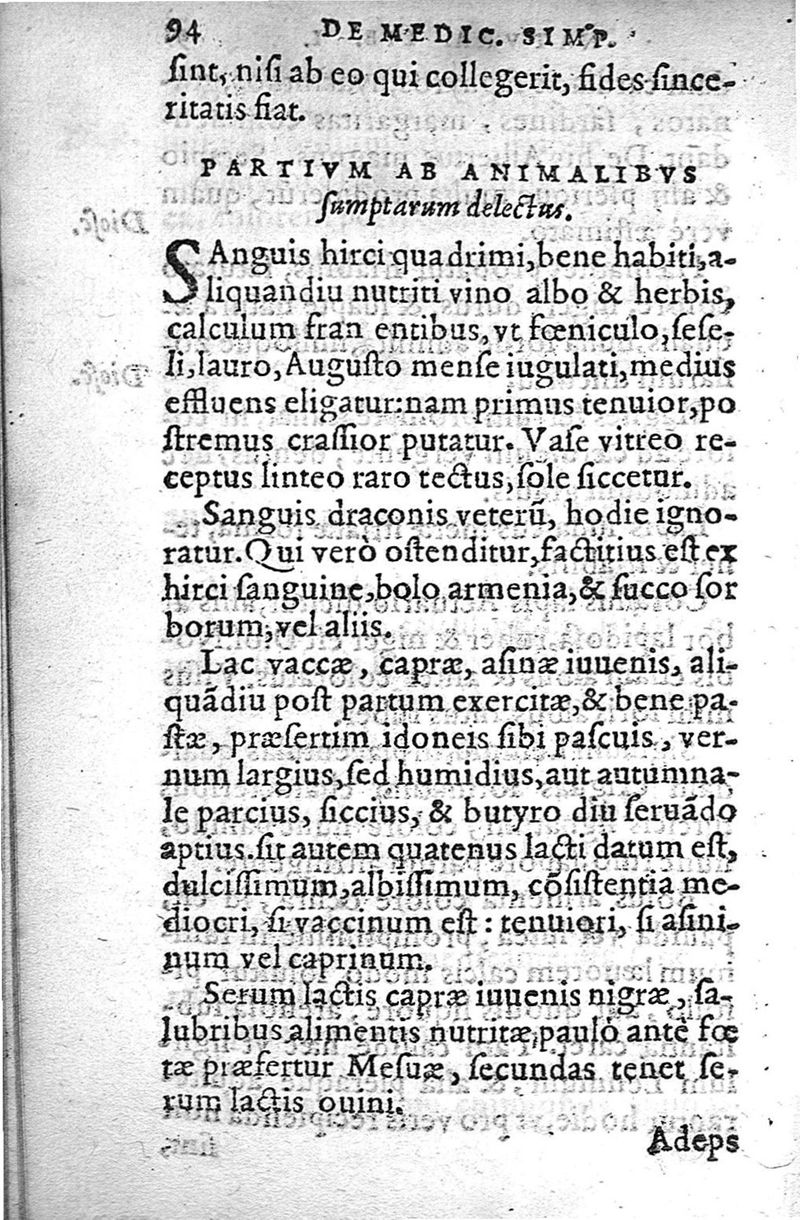 94 DE MEDIC. SIMP.
ſint, niſi ab eo qui collegerit, fides ſince-
ritatis fiat.
PARTIVM AB ANIMALIBVS
ſumptarum delectus.
SAnguis hirci quadrimi, bene habiti, a-
liquandiu nutriti vino albo & herbis,
calculum fran entibus, vt fœniculo, ſeſe-
li, lauro, Auguſto menſe iugulati, medius
effluens eligatur: nam primus tenuior, po
ſtremus craſſior putatur. Vaſe vitreo re-
ceptus linteo raro tectus, ſole ſiccetur.
Sanguis draconis veterũ, hodie igno-
ratur. Qui verò oſtenditur, factitius eſt ex
hirci ſanguine, bolo armenia, & ſucco ſor
borum, vel aliis.
Lac vaccæ, capræ, aſinæ iuuenis, ali-
quãdiu poſt partum exercitæ, & bene pa-
ſtæ, præſertim idoneis ſibi paſcuis, ver-
num largius, ſed humidius, aut autumna-
le parcius, ſiccius, & butyro diu ſeruãdo
aptius. ſit autem quatenus lacti datum eſt,
dulciſſimum, albiſſimum, cõſiſtentia me-
diocri, ſi vaccinum eſt: tenuiori, ſi aſini-
num vel caprinum.
Serum lactis capræ iuuenis nigræ, ſa-
lubribus alimentis nutritæ, paulò antè fœ
tæ præfertur Meſuæ, ſecundas tenet ſe-
rum lactis ouini.
Adeps